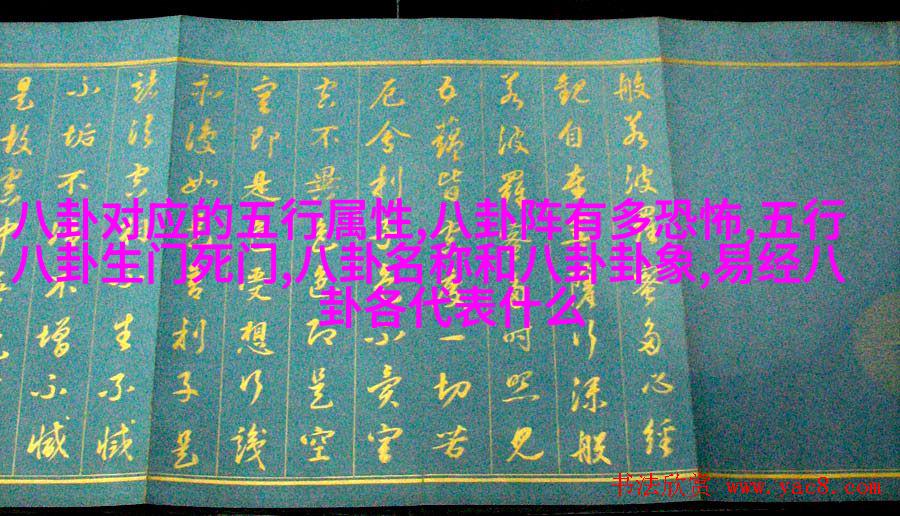 八卦对应的五行属性,八卦阵有多恐怖,五行
八卦生门死门,八卦名称和八卦卦象,易经八
卦各代表什么
般若波羅蜜多心經
觀自在菩薩行深般
若波羅蜜多時照見
五蘊皆空度一切苦
厄舍利子色不異空
空不異色色即是空
空即是色受想行識
亦復如是舍利子是
諸法空相不生不滅
不垢不淨不增不減
是故空中
书法欣赏 www.yac8.com